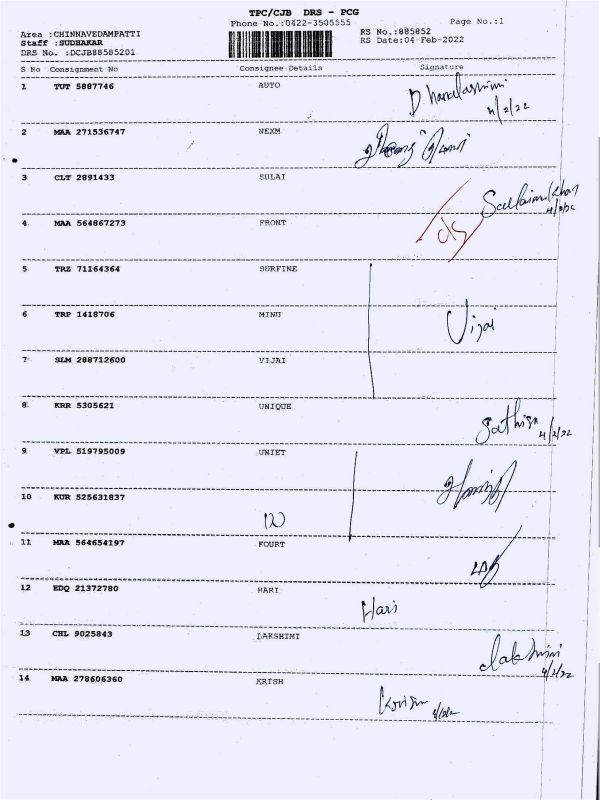 TPC/CJB DRS - PCG
Phone No.:0422-3505555 Page No.:1
Area :CHINNAVEDAMPATTI RS No.:885852
Staff :SUDHAKAR RS Date:04-Feb-2022
DRS No. :DCJB88585201
S No Consignment No Consignee Details Signature
1 TUT 5887746 AUTO Dhanalashimi
4/2/22
2 MAA 271536747 NEXM
3 CLT 2891433 SULAI Sulaiman Khan
4 MAA 564867273 FRONT
5 TRZ 71164364 SURFINE
6 TRP 1418706 MINU Vijai
7 SLM 288712600 VIJAI
8 KRR 5305621 UNIQUE Sathish
4/2/22
9 VPL 519795009 UNIET
10 KUR 525631837
11 MAA 564654197 FOURT
12 EDQ 21372780 HARI Hari
13 CHL 9025843 LAKSHIMI Lakshmi
4/2/22
14 MAA 278606360 KRISH